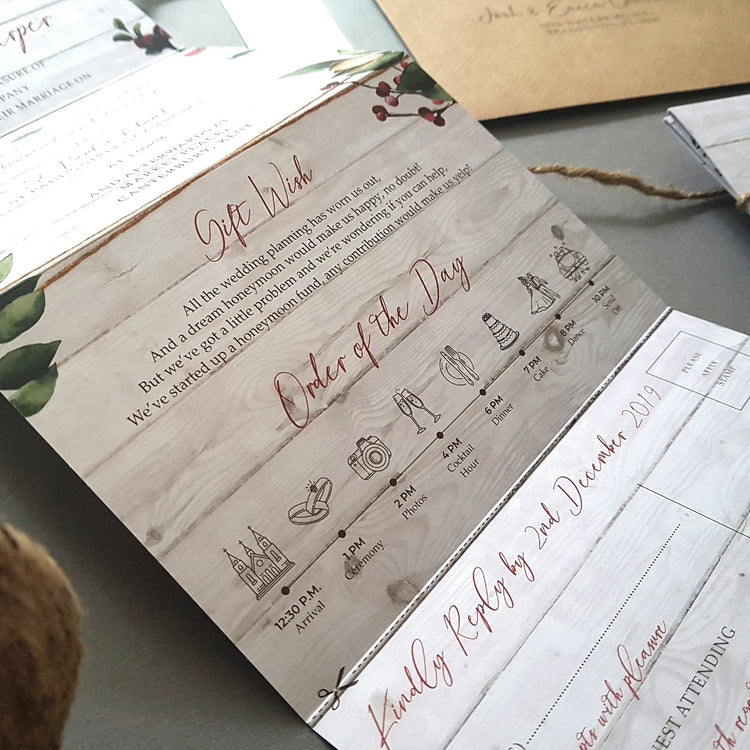 Josh & Erica
SURE OF
PANY
EIR MARRIAGE ON
AND AFTERWARDS AT
CANTERBURY, KENT
Gift Wish
All the wedding planning has worn us out,
And a dream honeymoon would make us happy, no doubt!
But we've got a little problem and we're wondering if you can help,
We've started up a honeymoon fund, any contribution would make us yelp!
Order of the Day
12:30 P.M.
Arrival
1 PM
Ceremony
2 PM
Photos
4 PM
Cocktail
Hour
6 PM
Dinner
7 PM
Cake
8 PM
Dance
10 PM
Send
Off
PLEASE
AFFIX
STAMP
Kindly Reply by 2nd December 2019
pts with pleasure
EST ATTENDING